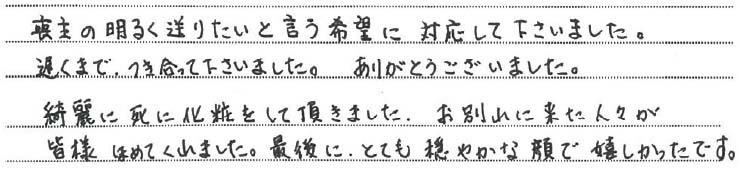 喪主の明るく送りたいと言う希望に対応して下さいました。
遅くまで、つき合って下さいました。 ありがとうございました。
綺麗に死に化粧をして頂きました。 お別れに来た人々が
皆様 ほめてくれました。最後に、とても 穏やかな 顔で 嬉しかったです。